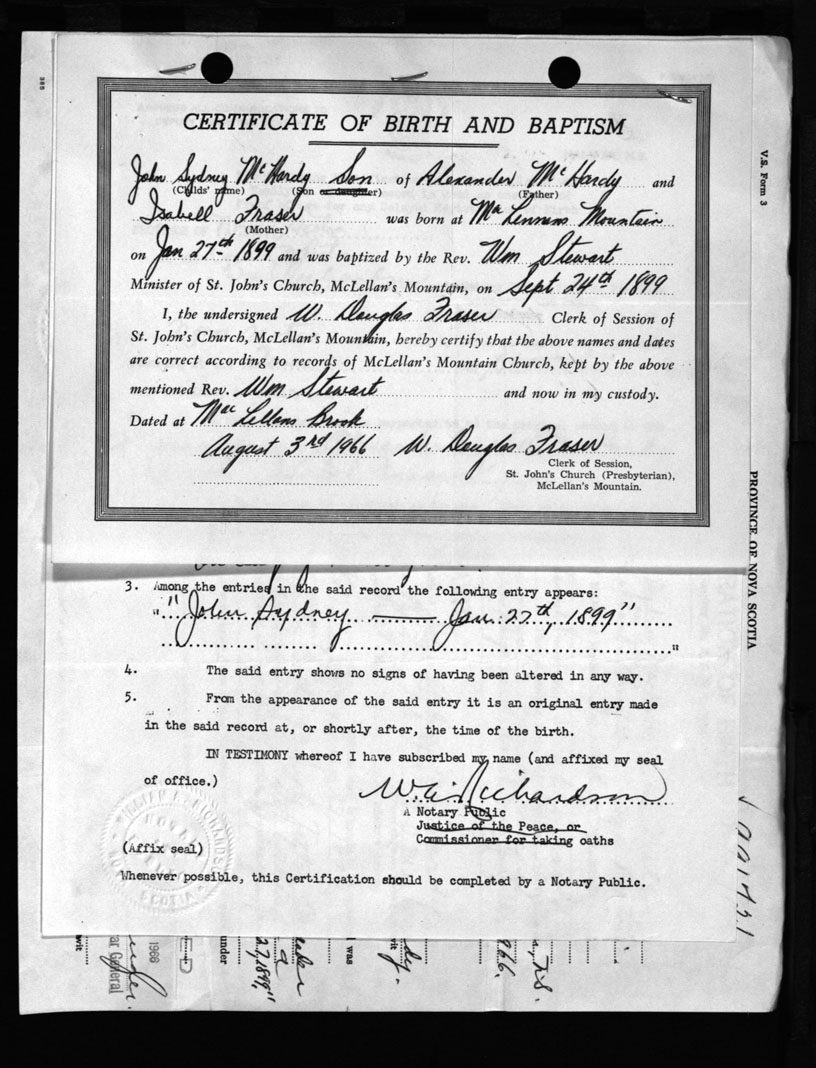 CERTIFICATE OF BIRTH AND BAPTISM
John Sydney McHardy Son of Alexander McHardy and
(Childs' name) (Son or daughter) (Father)
Isabell Fraser was born at Mac Lennens Mountain
(Mother)
on Jan 27th 1899 and was baptized by the Rev. Wm Stewart
Minister of St. John's Church, McLellan's Mountain, on Sept 24th 1899
I, the undersigned W. Douglas Fraser Clerk of Session of
St. John's Church, McLellan's Mountain, hereby certify that the above names and dates
are correct according to records of McLellan's Mountain Church, kept by the above
mentioned Rev. Wm Stewart and now in my custody.
Dated at Mac Lellans Brook
August 3rd 1966 W. Douglas Fraser
Clerk of Session,
St. John's Church (Presbyterian),
McLellan's Mountain.
3. Among the entries in the said record the following entry appears:
"John Sydney — Jan. 27th, 1899"
"
4. The said entry shows no signs of having been altered in any way.
5. From the appearance of the said entry it is an original entry made
in the said record at, or shortly after, the time of the birth.
IN TESTIMONY whereof I have subscribed my name (and affixed my seal
of office.)
W.A. Richardson
A Notary Public
Justice of the Peace, or
Commissioner for taking oaths
(Affix seal)
Whenever possible, this Certification should be completed by a Notary Public.
V.S. Form 3
PROVINCE OF NOVA SCOTIA
under
27, 1899."
1966
ar General
was
966.
N.S.